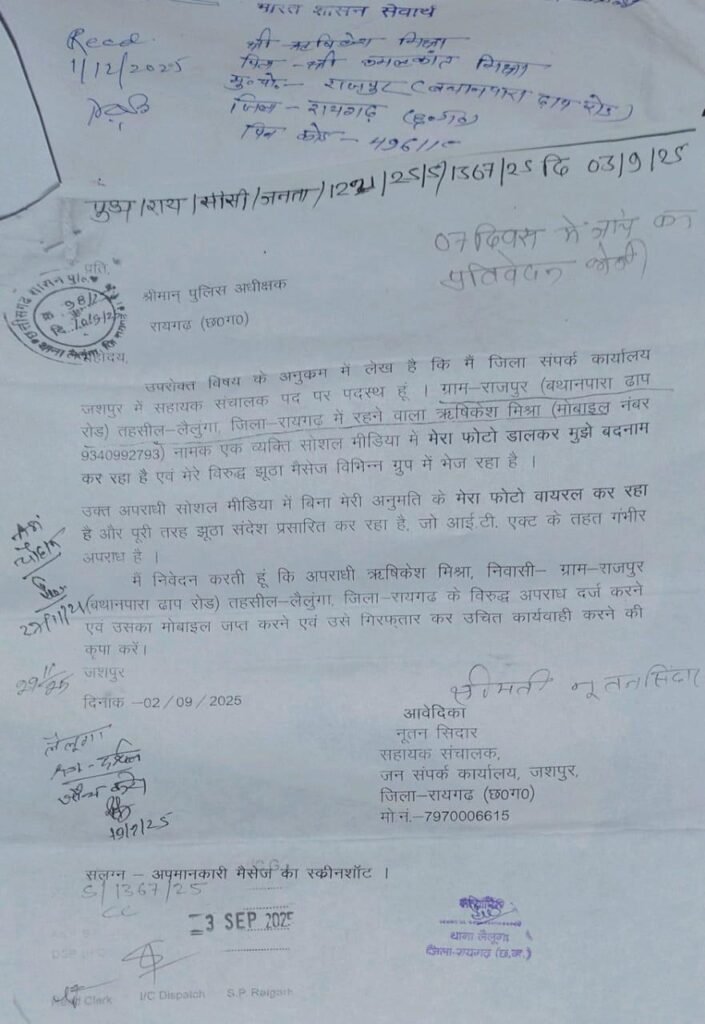 भारत शासन सेवार्थ
Recd.
1/12/2025
श्री ऋषिकेश मिश्रा
पिता - श्री कमलकांत मिश्रा
मु०पो०- राजपुर (बथानपारा ढाप रोड)
जिला - रायगढ़ (छ०ग०)
पिन कोड - 49611
/सीसी/जनता/ /25/S/1367/25 दि 03/9/25
07 दिवस में जांच का
प्रतिवेदन
प्रति,
श्रीमान् पुलिस अधीक्षक
रायगढ़ (छ०ग०)
महोदय,
उपरोक्त विषय के अनुकम में लेख है कि मैं जिला संपर्क कार्यालय
जशपुर में सहायक संचालक पद पर पदस्थ हूं । ग्राम-राजपुर (बथानपारा ढाप
रोड) तहसील-लैलुंगा, जिला-रायगढ़ में रहने वाला ऋषिकेश मिश्रा (मोबाइल नंबर
9340992793) नामक एक व्यक्ति सोशल मीडिया में मेरा फोटो डालकर मुझे बदनाम
कर रहा है एवं मेरे विरुद्ध झूठा मैसेज विभिन्न ग्रुप में भेज रहा है ।
उक्त अपराधी सोशल मीडिया में बिना मेरी अनुमति के मेरा फोटो वायरल कर रहा
है और पूरी तरह झूठा संदेश प्रसारित कर रहा है, जो आई.टी. एक्ट के तहत गंभीर
अपराध है ।
मैं निवेदन करती हूं कि अपराधी ऋषिकेश मिश्रा, निवासी- ग्राम-राजपुर
(बथानपारा ढाप रोड) तहसील-लैलुंगा, जिला-रायगढ़ के विरुद्ध अपराध दर्ज करने
एवं उसका मोबाइल जप्त करने एवं उसे गिरफ्तार कर उचित कार्यवाही करने की
कृपा करें।
जशपुर
दिनांक -02/09/2025
श्रीमती नूतन सिदार
आवेदिका
नूतन सिदार
सहायक संचालक,
जन संपर्क कार्यालय, जशपुर,
जिला-रायगढ़ (छ०ग०)
मो नं.-7970006615
लैलुंगा
सलग्न - अपमानकारी मैसेज का स्क्रीनशॉट ।
S/1367/25
CC
3 SEP 2025
थाना लैलुंगा
जिला-रायगढ़ (छ.ग.)
Clark I/C Dispatch S.P. Raigarh